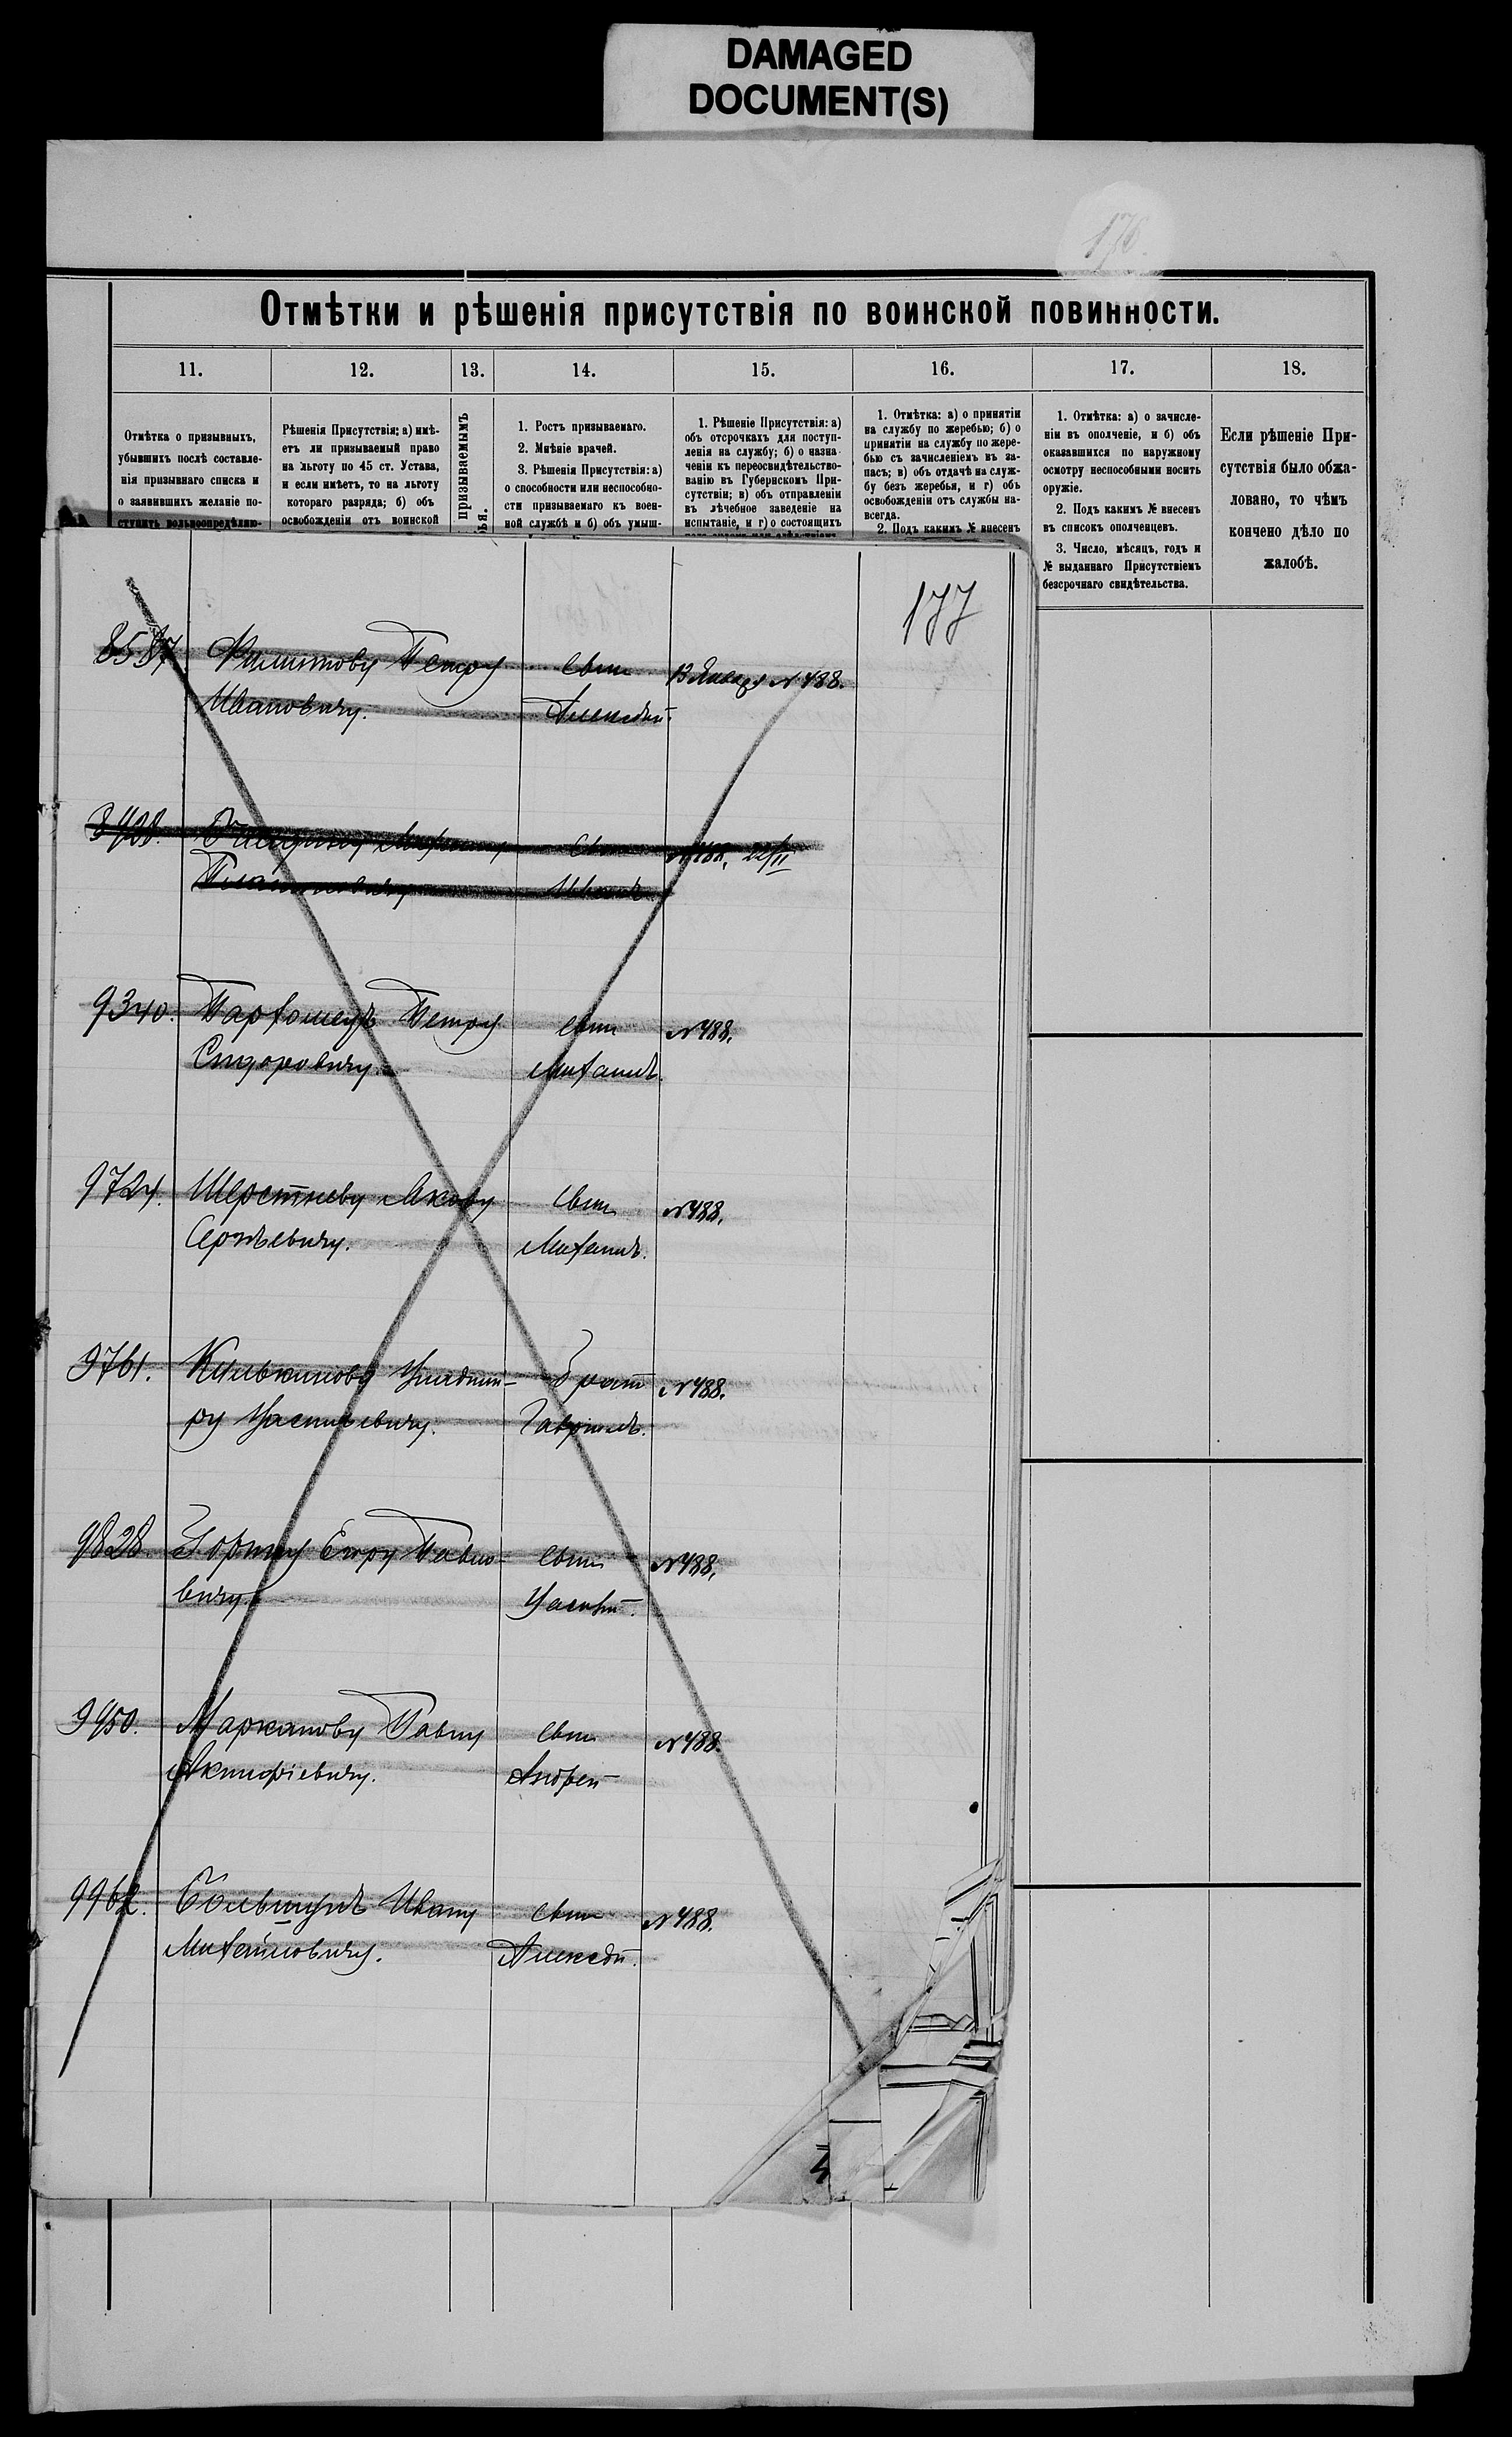 DAMAGED
DOCUMENT(S)
176.
Отмѣтки и рѣшенія присутствія по воинской повинности.
11. 12. 13. 14. 15. 16. 17. 18.
Отмѣтка о призывныхъ,
убывшихъ послѣ составле-
нія призывнаго списка и
о заявившихъ желаніе по-
ступить вольноопредѣляю-
Рѣшенія Присутствія: а) имѣ-
етъ ли призываемый право
на льготу по 45 ст. Устава,
и если имѣетъ, то на льготу
котораго разряда; б) объ
освобожденіи отъ воинской
призываемымъ
1. Ростъ призываемаго.
2. Мнѣніе врачей.
3. Рѣшенія Присутствія: а)
о способности или неспособно-
сти призываемаго къ воен-
ной службѣ и б) объ умыш-
1. Рѣшеніе Присутствія: а)
объ отсрочкахъ для поступ-
ленія на службу; б) о назна-
ченіи къ переосвидѣтельство-
ванію въ Губернскомъ При-
сутствіи; в) объ отправленіи
въ лѣчебное заведеніе на
испытаніе, и г) о состоящихъ
1. Отмѣтка: а) о принятіи
на службу по жеребью; б) о
принятіи на службу по жере-
бью съ зачисленіемъ въ за-
пасъ; в) объ отдачѣ на служ-
бу безъ жеребья, и г) объ
освобожденіи отъ службы на-
всегда.
2. Подъ какимъ № внесенъ
1. Отмѣтка: а) о зачисле-
ніи въ ополченіе, и б) объ
оказавшихся по наружному
осмотру неспособными носить
оружіе.
2. Подъ какимъ № внесенъ
въ списокъ ополченцевъ.
3. Число, мѣсяцъ, годъ и
№ выданнаго Присутствіемъ
безсрочнаго свидѣтельства.
Если рѣшеніе При-
сутствія было обжа-
ловано, то чѣмъ
кончено дѣло по
жалобѣ.
177
8587. Филиппову Петру 13 Января № 488.
Ивановичу. Алексѣй.
№ 488, 22/II
9340. Петру № 488.
Сидоровичу. Михаилъ.
9724. Шерстневу Якову № 488.
Сергѣевичу. Михаилъ.
9761. Кулькинову Владими- братъ № 488.
ру Васильевичу. Гавріилъ.
9828. Зорину Егору Павло- № 488.
вичу. Василій.
9950. Марканову Павлу № 488.
Андрей
9962. Ивану № 488.
Михайловичу. Алексѣй.